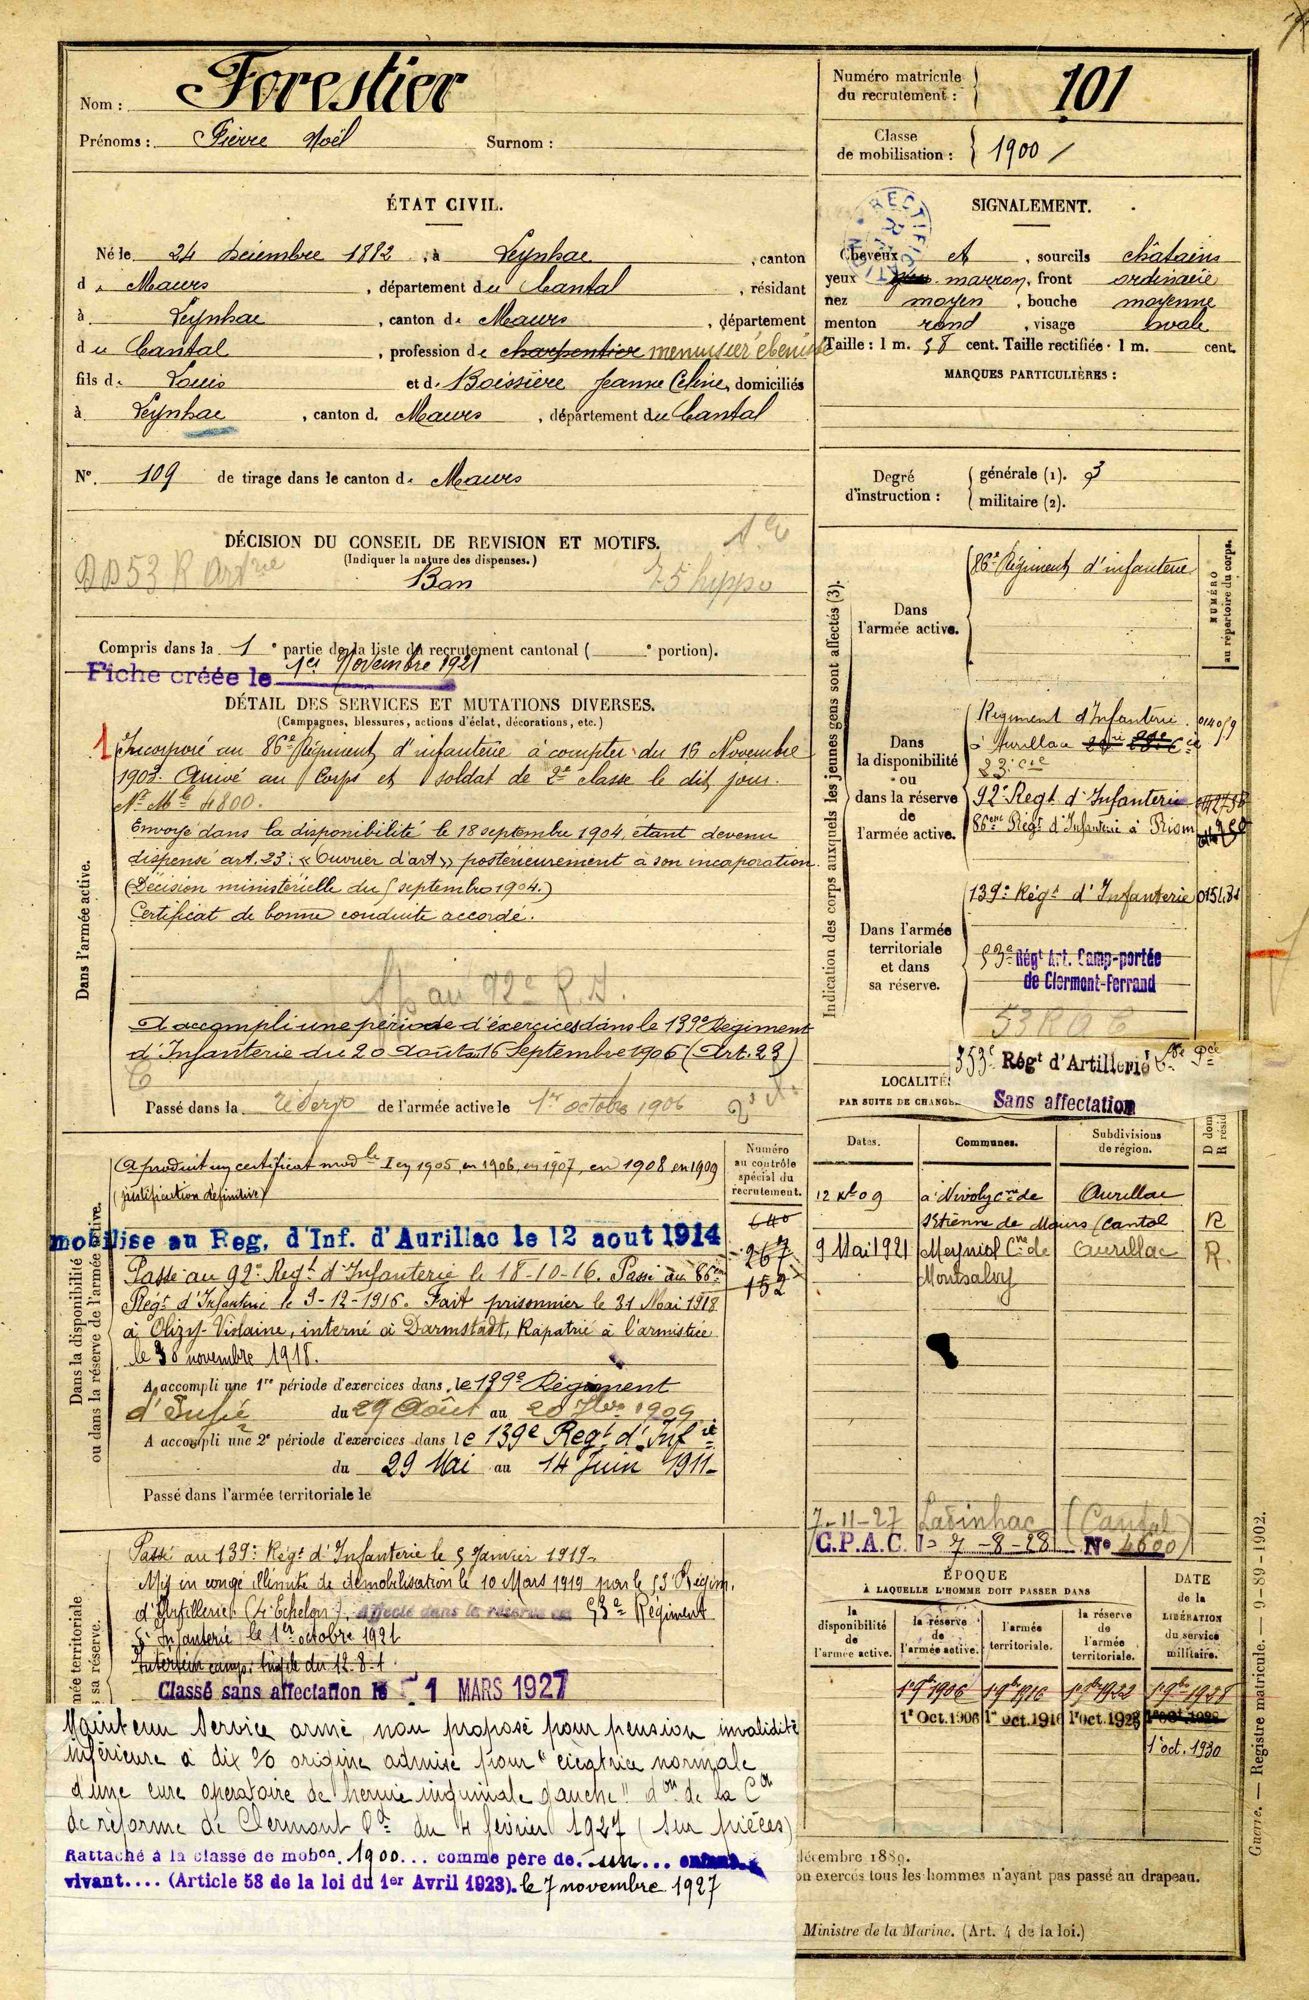 Nom : Forestier
Prénoms : Pierre Noël Surnom :
Numéro matricule du recrutement : 101
Classe de mobilisation : 1900
ÉTAT CIVIL.
Né le 24 décembre 1882, à Leynhac, canton
de Maurs, département du Cantal, résidant
à Leynhac, canton de Maurs, département
du Cantal, profession de charpentier menuisier ébéniste
fils de Louis et de Boissière Jeanne Celine, domiciliés
à Leynhac, canton de Maurs, département du Cantal
N° 109 de tirage dans le canton de Maurs
SIGNALEMENT.
RECTIFICATION
Cheveux et, sourcils châtains
yeux marron, front ordinaire
nez moyen, bouche moyenne
menton rond, visage ovale
Taille : 1 m. 58 cent. Taille rectifiée : 1 m. cent.
MARQUES PARTICULIÈRES :
Degré d'instruction : générale (1). 3
militaire (2).
DÉCISION DU CONSEIL DE REVISION ET MOTIFS.
(Indiquer la nature des dispenses.)
Bon
75 hippo
Compris dans la 1e partie de la liste du recrutement cantonal ( e portion).
Fiche créée le 1er Novembre 1921
DÉTAIL DES SERVICES ET MUTATIONS DIVERSES.
(Campagnes, blessures, actions d'éclat, décorations, etc.)
Dans l'armée active.
1 Incorporé au 86e Régiment d'infanterie à compter du 16 Novembre
1903. Arrivé au Corps et soldat de 2e classe le dit jour.
N° Mle 4800.
Envoyé dans la disponibilité le 18 septembre 1904, étant devenu
dispensé art. 23. « Ouvrier d'art » postérieurement à son incorporation.
(Décision ministérielle du 5 septembre 1904.)
Certificat de bonne conduite accordé.
au 92e R.I.
A accompli une période d'exercices dans le 139e Régiment
d'Infanterie du 20 août au 16 Septembre 1906 (Art. 23)
Passé dans la réserve de l'armée active le 1er octobre 1906
Dans la disponibilité ou dans la réserve de l'armée active.
A produit un certificat modle I en 1905, en 1906, en 1907, en 1908 en 1909
(justification définitive)
mobilise au Reg. d'Inf. d'Aurillac le 12 aout 1914
Passé au 92e Regt d'Infanterie le 18-10-16. Passé au 86eme
Régt d'Infanterie le 9-12-1916. Fait prisonnier le 31 Mai 1918
à Olizy-Violaine, interné à Darmstadt, Rapatrié à l'armistice
le 30 novembre 1918.
A accompli une 1re période d'exercices dans le 139e Régiment
d'Infie du 29 Août au 20 7bre 1909
A accompli une 2e période d'exercices dans le 139e Regt d'Infie
du 29 Mai au 14 Juin 1911
Passé dans l'armée territoriale le
Numéro au contrôle spécial du recrutement.
640
267
152
Passé au 139e Régt d'Infanterie le 5 Janvier 1919.
Mis en congé illimité de démobilisation le 10 Mars 1919 par le 53e Régim.
d'Artillerie. (4e Echelon). Affecté dans la réserve au 53e Régiment
d'Infanterie le 1er octobre 1921
Classé sans affectation le 1 MARS 1927
Maintenu service armé, non proposé pour pension, invalidité
inférieure à dix % origine admise pour "cicatrice normale
d'une cure opératoire de hernie inguinale gauche" don de la Con
de réforme de Clermont Fd du 4 février 1927 (sur pièces)
Rattaché à la classe de mobon. 1900... comme père de.. un... enfant
vivant.... (Article 58 de la loi du 1er Avril 1923). le 7 novembre 1927
Indication des corps auxquels les jeunes gens sont affectés (3).
NUMÉRO au répertoire du corps.
Dans l'armée active.
86e Régiment d'infanterie
Dans la disponibilité ou dans la réserve de l'armée active.
Régiment d'Infanterie
d'Aurillac
23e Cie
92e Regt d'Infanterie
86eme Régt d'Infanterie à Riom
Dans l'armée territoriale et dans sa réserve.
139e Régt d'Infanterie 015484
53e Régt Art. Camp-portée
de Clermont-Ferrand
53 RAC
353e Régt d'Artillerie
Sans affectation
LOCALITÉS
PAR SUITE DE CHANGE
Dates. Communes. Subdivisions de région. D dom R résid
12 Xbr 09 à Nivoly cne de Aurillac
St Etienne de Maurs (Cantal R
9 Mai 1921 Meyniol Cne de Aurillac R.
Montsalvy
7-11-27 Ladinhac (Cantal)
G.P.A.C. le 7-8-28 N° 4600
ÉPOQUE
À LAQUELLE L'HOMME DOIT PASSER DANS
la disponibilité de l'armée active. la réserve de l'armée active. l'armée territoriale. la réserve de l'armée territoriale.
DATE de la LIBÉRATION du service militaire.
1er 9bre 1906 1er 9bre 1916 1er 9bre 1922 1er 9bre 1928
1er Oct. 1906 1er oct. 1916 1er oct. 1923
1er oct. 1930
décembre 1889.
on exercés tous les hommes n'ayant pas passé au drapeau.
Ministre de la Marine. (Art. 4 de la loi.)
Guerre. — Registre matricule. — 9-89-1902.